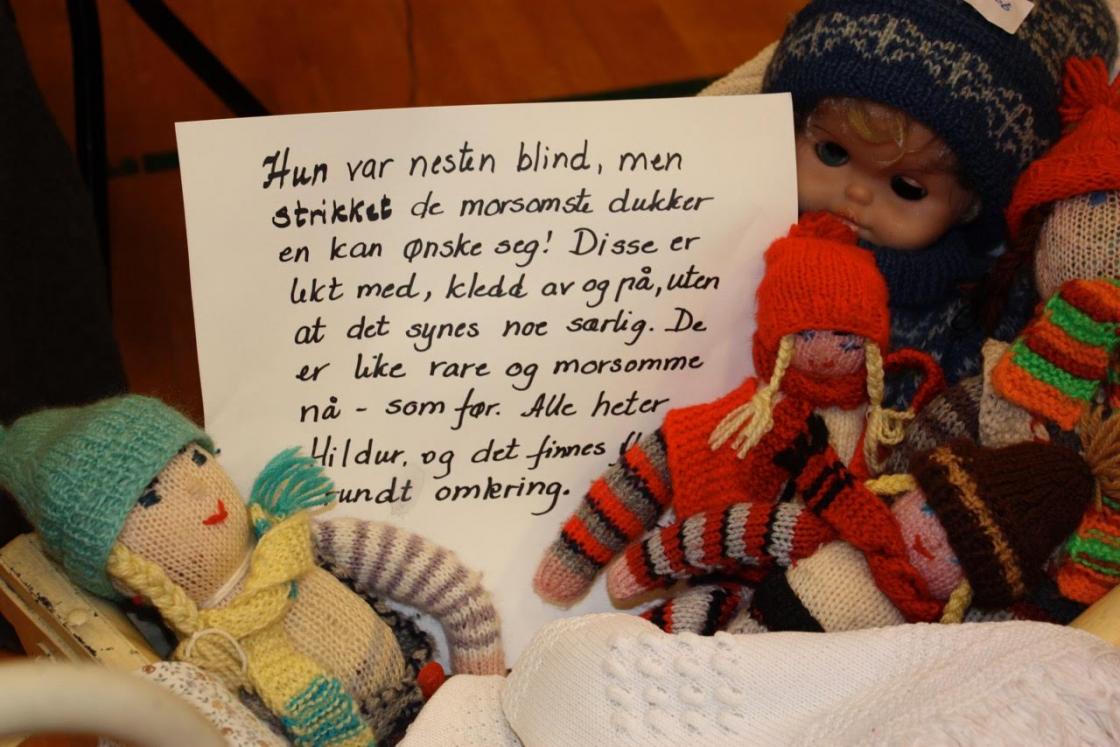 Hun var nesten blind, men
strikket de morsomste dukker
en kan ønske seg! Disse er
lekt med, kledd av og på, uten
at det synes noe særlig. De
er like rare og morsomme
nå - som før. Alle heter
Hildur, og det finnes
rundt omkring.